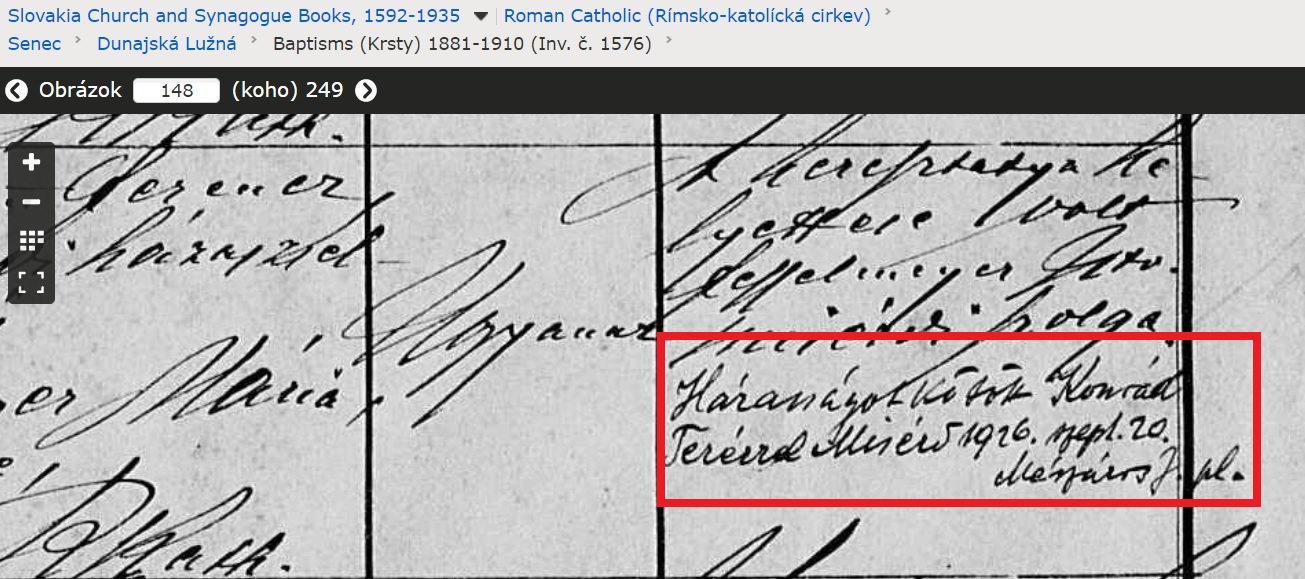 Slovakia Church and Synagogue Books, 1592-1935 Roman Catholic (Rímsko-katolícká cirkev)
Senec Dunajská Lužná Baptisms (Krsty) 1881-1910 (Inv. č. 1576)
Obrázok 148 (koho) 249
Ferencz
házasz
A keresztatya he
lyettese volt
polga
Mária,
Ugyanaz
Házasságot kötött Konrád
Terézzel Misérd 1926. szept. 20.
Mészáros J. pl.
R Kath.